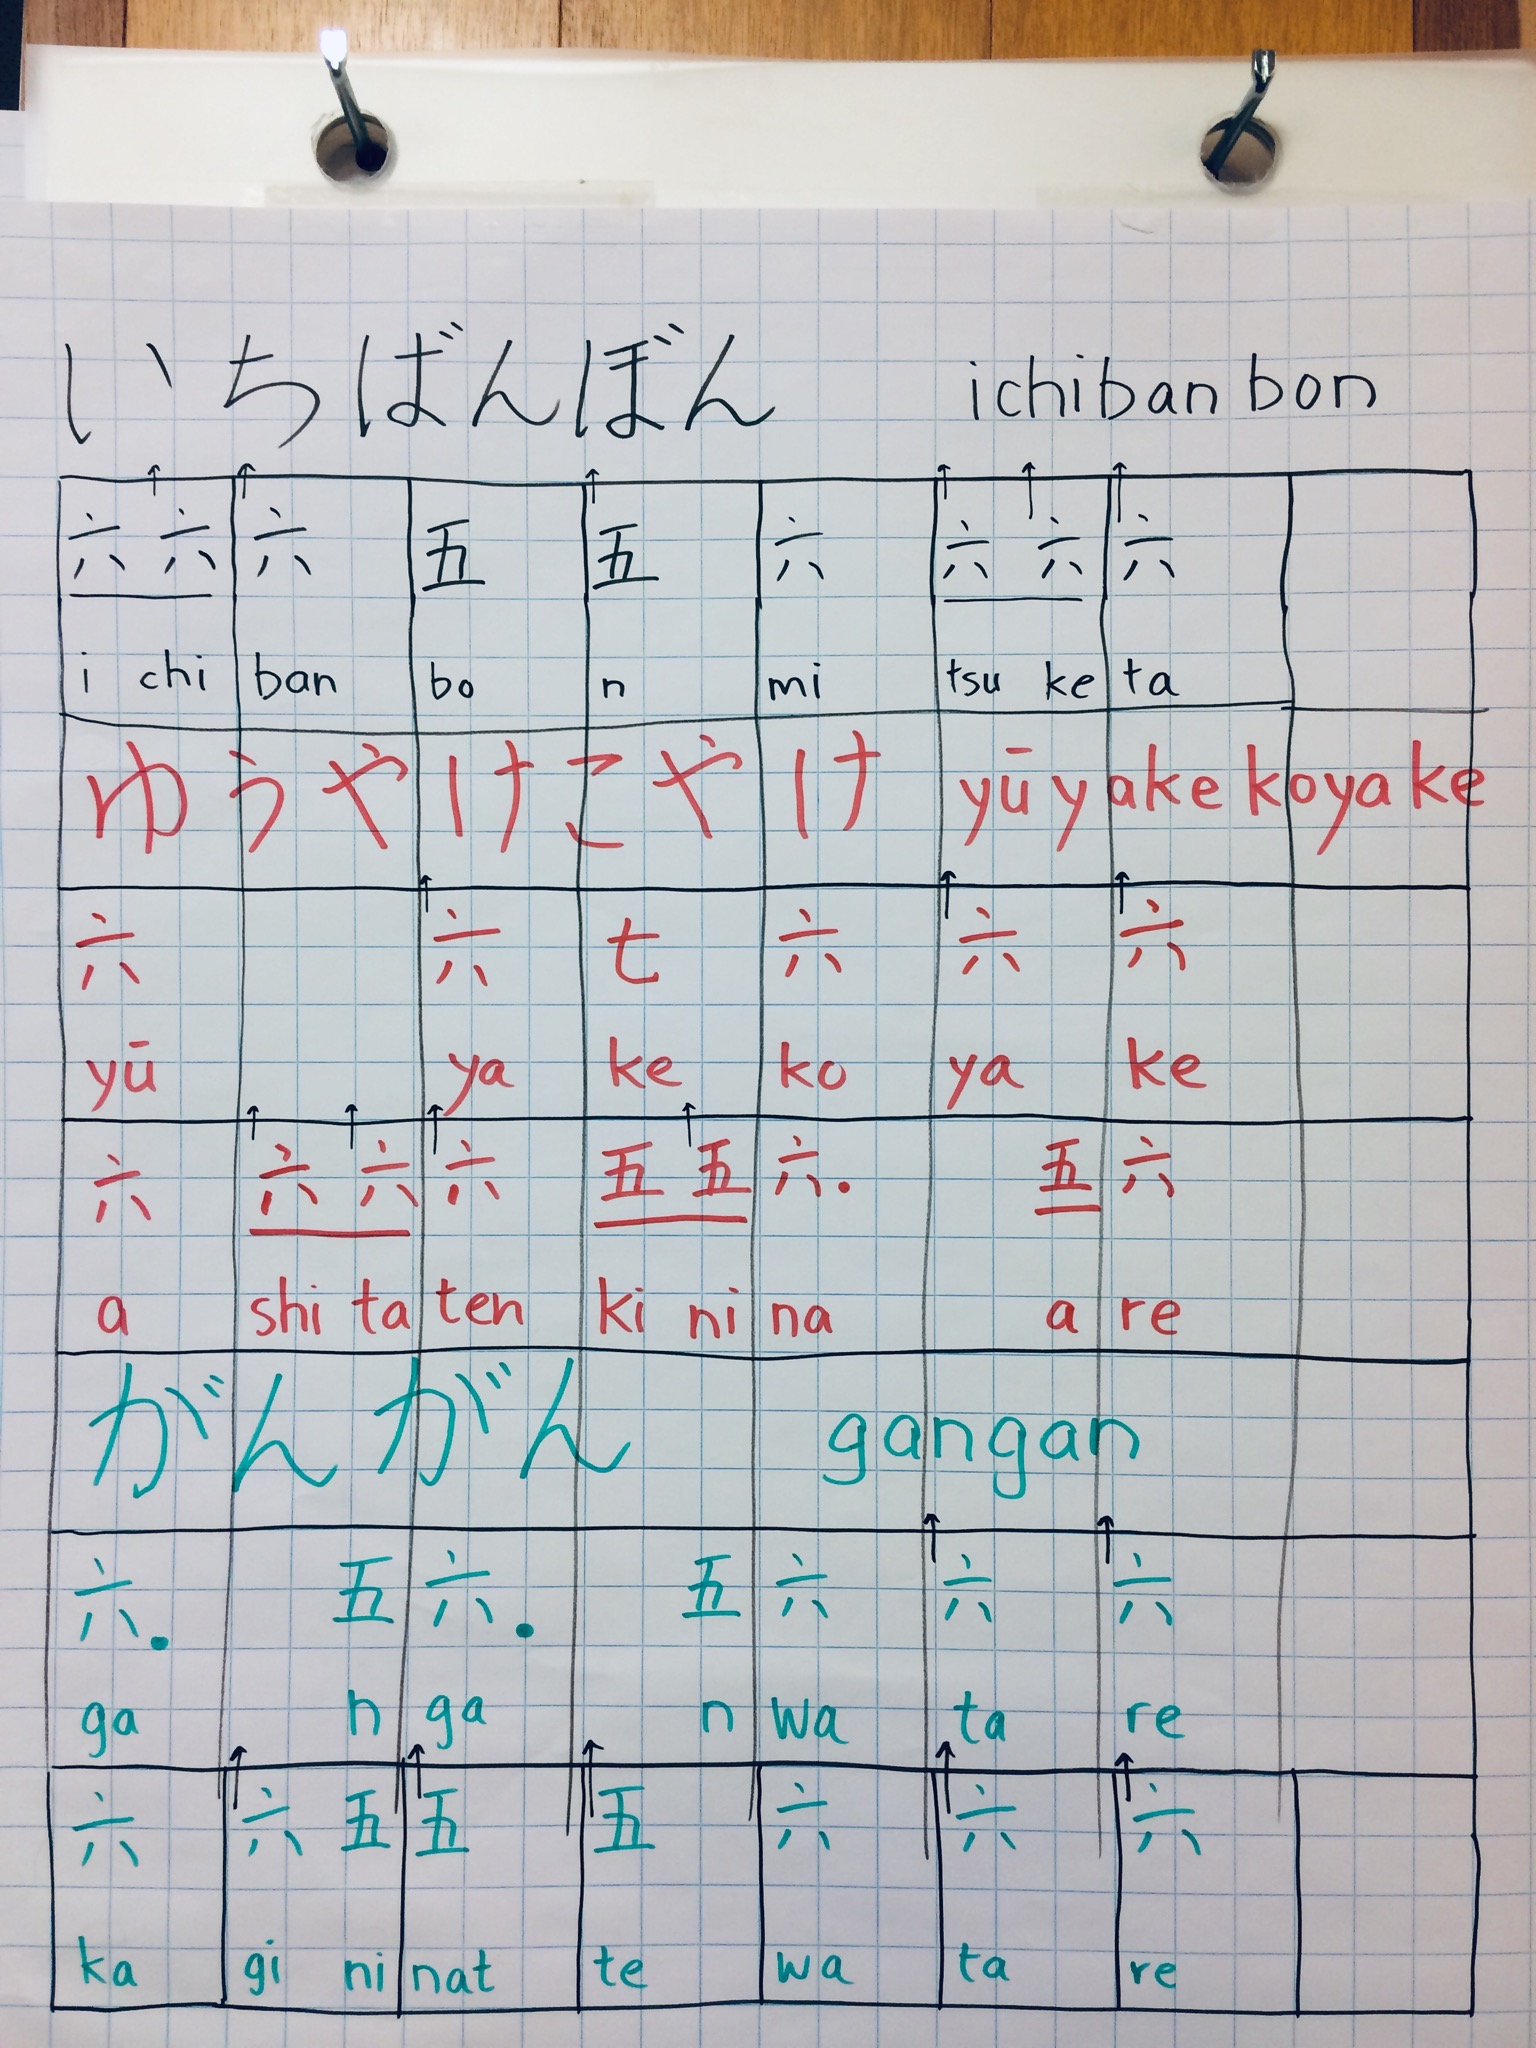 いちばんぼん ichiban bon
六 六 六 五 五 六 六 六 六
i chi ban bo n mi tsu ke ta
ゆうやけこやけ yūyake koyake
六 六 七 六 六 六
yū ya ke ko ya ke
六 六 六 六 五 五 六. 五 六
a shi ta ten ki ni na a re
がんがん gangan
六. 五 六. 五 六 六 六
ga n ga n wa ta re
六 六 五 五 五 六 六 六
ka gi ni nat te wa ta re